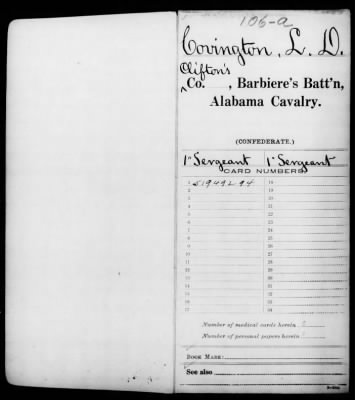 106-a
Covington, L. D.
Clifton's
Co. , Barbiere's Batt'n,
Alabama Cavalry.
(CONFEDERATE.)
1st Sergeant 1st Sergeant
CARD NUMBERS.
1 51949294 18
2 19
3 20
4 21
5 22
6 23
7 24
8 25
9 26
10 27
11 28
12 29
13 30
14 31
15 32
16 33
17 34
Number of medical cards herein
Number of personal papers herein
BOOK MARK:
See also